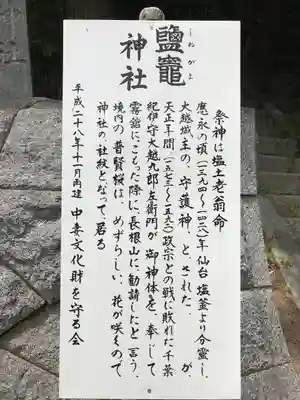 鹽竈神社
しおがま
祭神は塩土老翁命
應永の頃(一三九四～一四二八)年仙台 塩釜より分霊し、
大越城主の、守護神、と、された が、
天正年間(一五七三～一五九二)政宗との戦に敗れた千葉
紀伊守大越九郎左衛門が 御神体を、奉じて
霧鎧に、こもった際に長根山に勧請したと言う、
境内の 普賢桜は、めずらしい、花が咲くので
神社の社紋となって、居る
平成二十八年十一月再建 中妻文化財を守る会